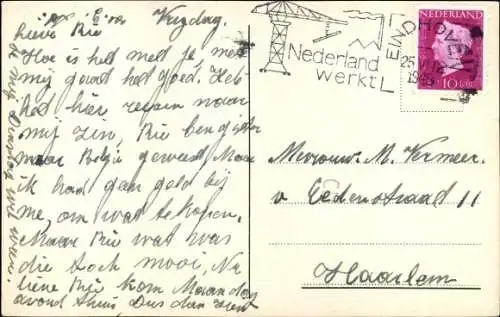 Vrijdag.
lieve Rie
Hoe is het met je, met
mij gaat het goed. Heb
het hier reuzen naar
mijn zin, Rie ben gister
naar België geweest Maar
ik had gen geld bij
me, om wat te kopen.
Maar Rie wat was
die toch mooi, Na
lieve Rie kom Maandag
avond thuis, Dus dan
Nederland
werkt
EINDHOVEN
25 VI
194
NEDERLAND
10 cent
Mevrouw. M. Vermeer.
v Eedenstraat 11
Haarlem